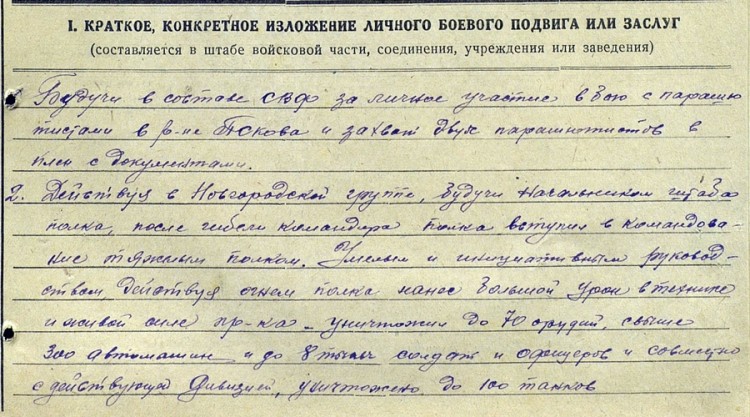 I. КРАТКОЕ, КОНКРЕТНОЕ ИЗЛОЖЕНИЕ ЛИЧНОГО БОЕВОГО ПОДВИГА ИЛИ ЗАСЛУГ
(составляется в штабе войсковой части, соединения, учреждения или заведения)
Будучи в составе СВФ за личное участие в бою с парашю
тистами в р-не Пскова и захват двух парашютистов в
плен с документами.
2. Действуя в Новгородской группе, будучи начальником штаба
полка, после гибели командира полка вступил в командова-
ние тяжелым полком. Умелым и инициативным руковод-
ством, действуя огнем полка нанес большой урон в технике
и живой силе пр-ка - уничтожил до 70 орудий, свыше
300 автомашин и до 8 тысяч солдат и офицеров и совместно
с действующей дивизией, уничтожено до 100 танков